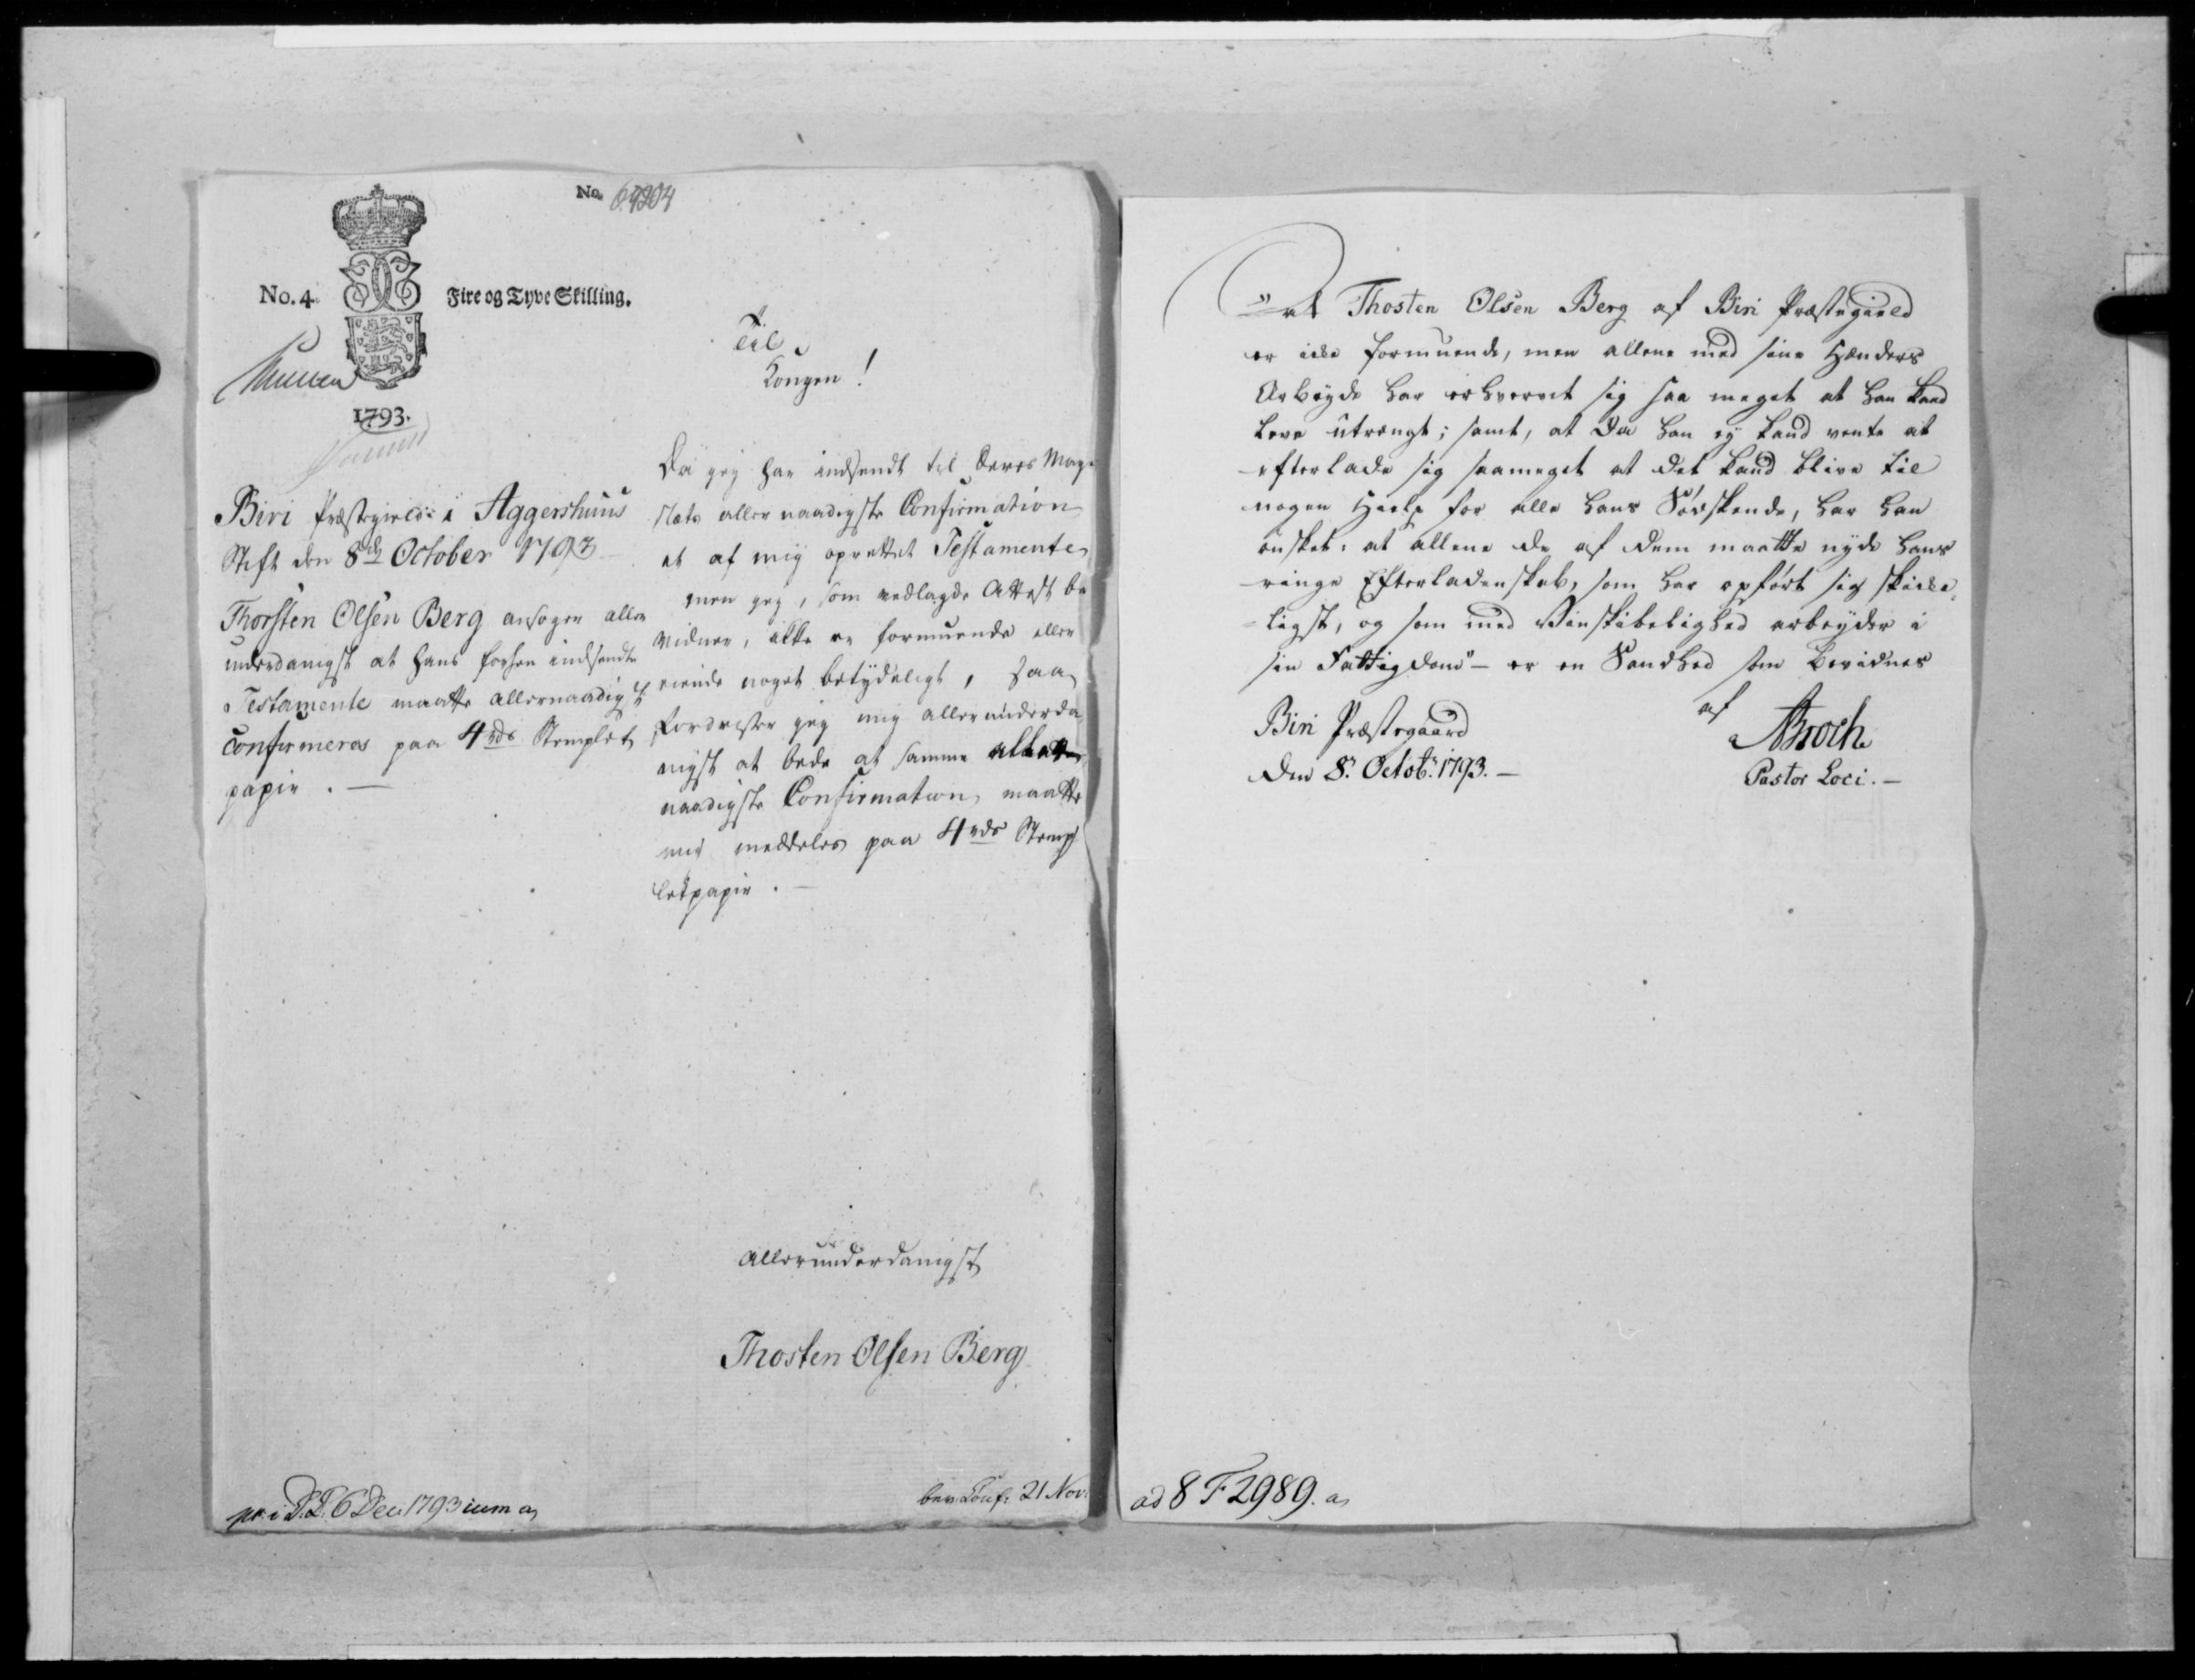 No. 64204
No. 4. Fire og Tyve Skilling.
1793.
Biri Præstegield i Aggershuus
Stift den 8de October 1793
Thorsten Olsen Berg ansøger aller
underdanigst at hans forhen indsendte
Testamente maatte allernaadigst
Confirmeres paa 4rds Stemplet
papir. —
Til
Kongen!
Da jeg har indsendt til Deres Maye
stæts aller naadigste Confirmation
et af mig oprettet Testamente,
men jeg, som vedlagde Attest be
vidner, ikke er formuende eller
eiende noget betydeligt, saa
fordrister jeg mig allerunderda
nigst at bede at samme aller
naadigste Confirmation, maatte
mig meddeles paa 4rds Stemp
letpapir. —
Allerunderdanigst
Thosten Olsen Berg
pr. i D. D. 6 Dec. 1793
bev. Conf. 21 Nov.
"At Thosten Olsen Berg af Biri Præstegield
er ikke formuende, men allene med sine Hænders
Arbeyde har erhvervet sig saa meget at han kand
leve utrængt; samt, at da han ey kand vente at
efterlade sig saameget at det kand blive til
nogen Hielp for alle hans Sødskende, har han
ønsket: at allene de af dem maatte nyde hans
ringe Efterladenskab, som har opført sig skikke-
ligst, og som med Vinskibelighed arbeyder i
sin Fattigdom" — er en Sandhed som bevidnes
af
Biri Præstegaard
den 8. Octobr. 1793. —
Broch
Pastor Loci. —
ad 8 F 2989. a